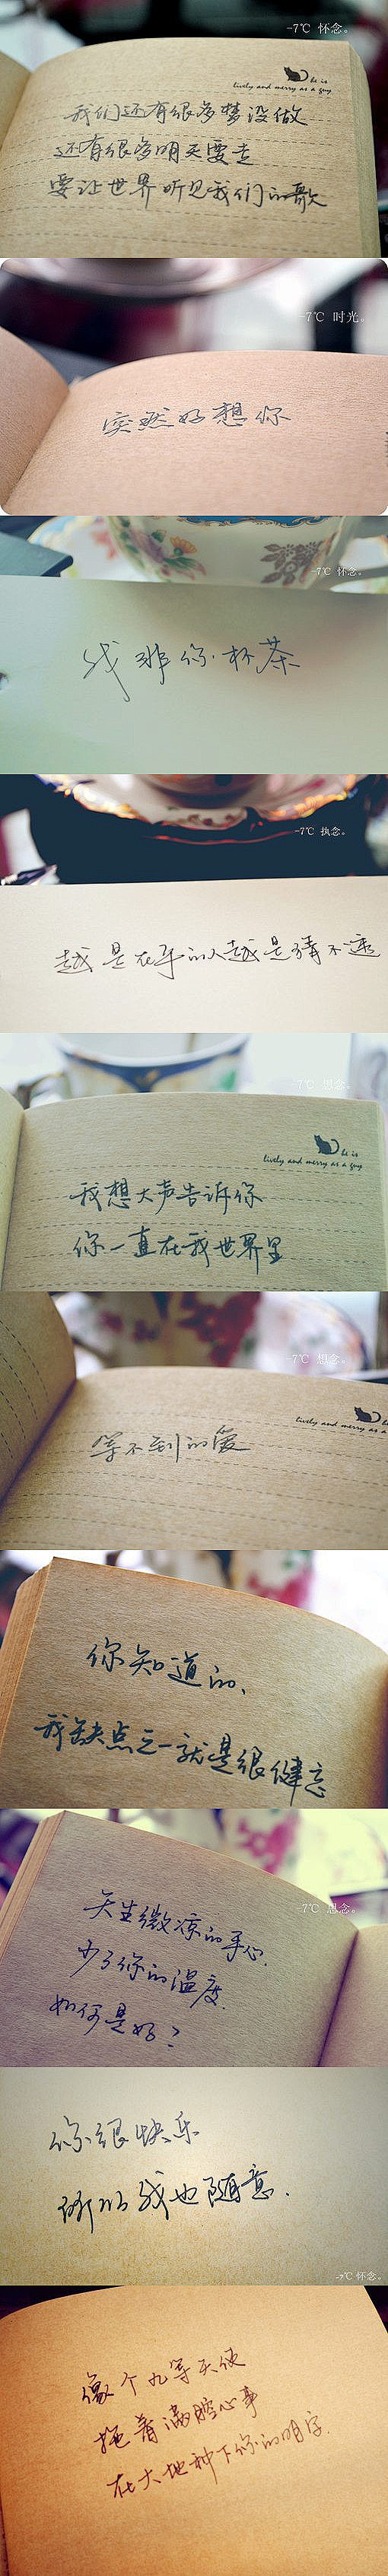 -7℃ 怀念。
he is
lively and merry as a guy
我们还有很多梦没做
还有很多明天要走
要让世界听见我们的歌
-7℃ 时光。
突然好想你
-7℃ 怀念。
我那你·杯茶
-7℃ 执念。
越是在乎的人越是猜不透
-7℃ 想念。
he is
lively and merry as a guy
我想大声告诉你
你一直在我世界里
-7℃ 想念。
he is
lively and merry as a
等不到的爱
你知道的、
我缺点之一就是很健忘
-7℃ 想念。
天生微凉的手心.
少了你的温度.
如何是好?
你很快乐
所以我也随意.
-7℃ 怀念。
像个九等天使
拖着满腔心事
在大地种下你的明字.